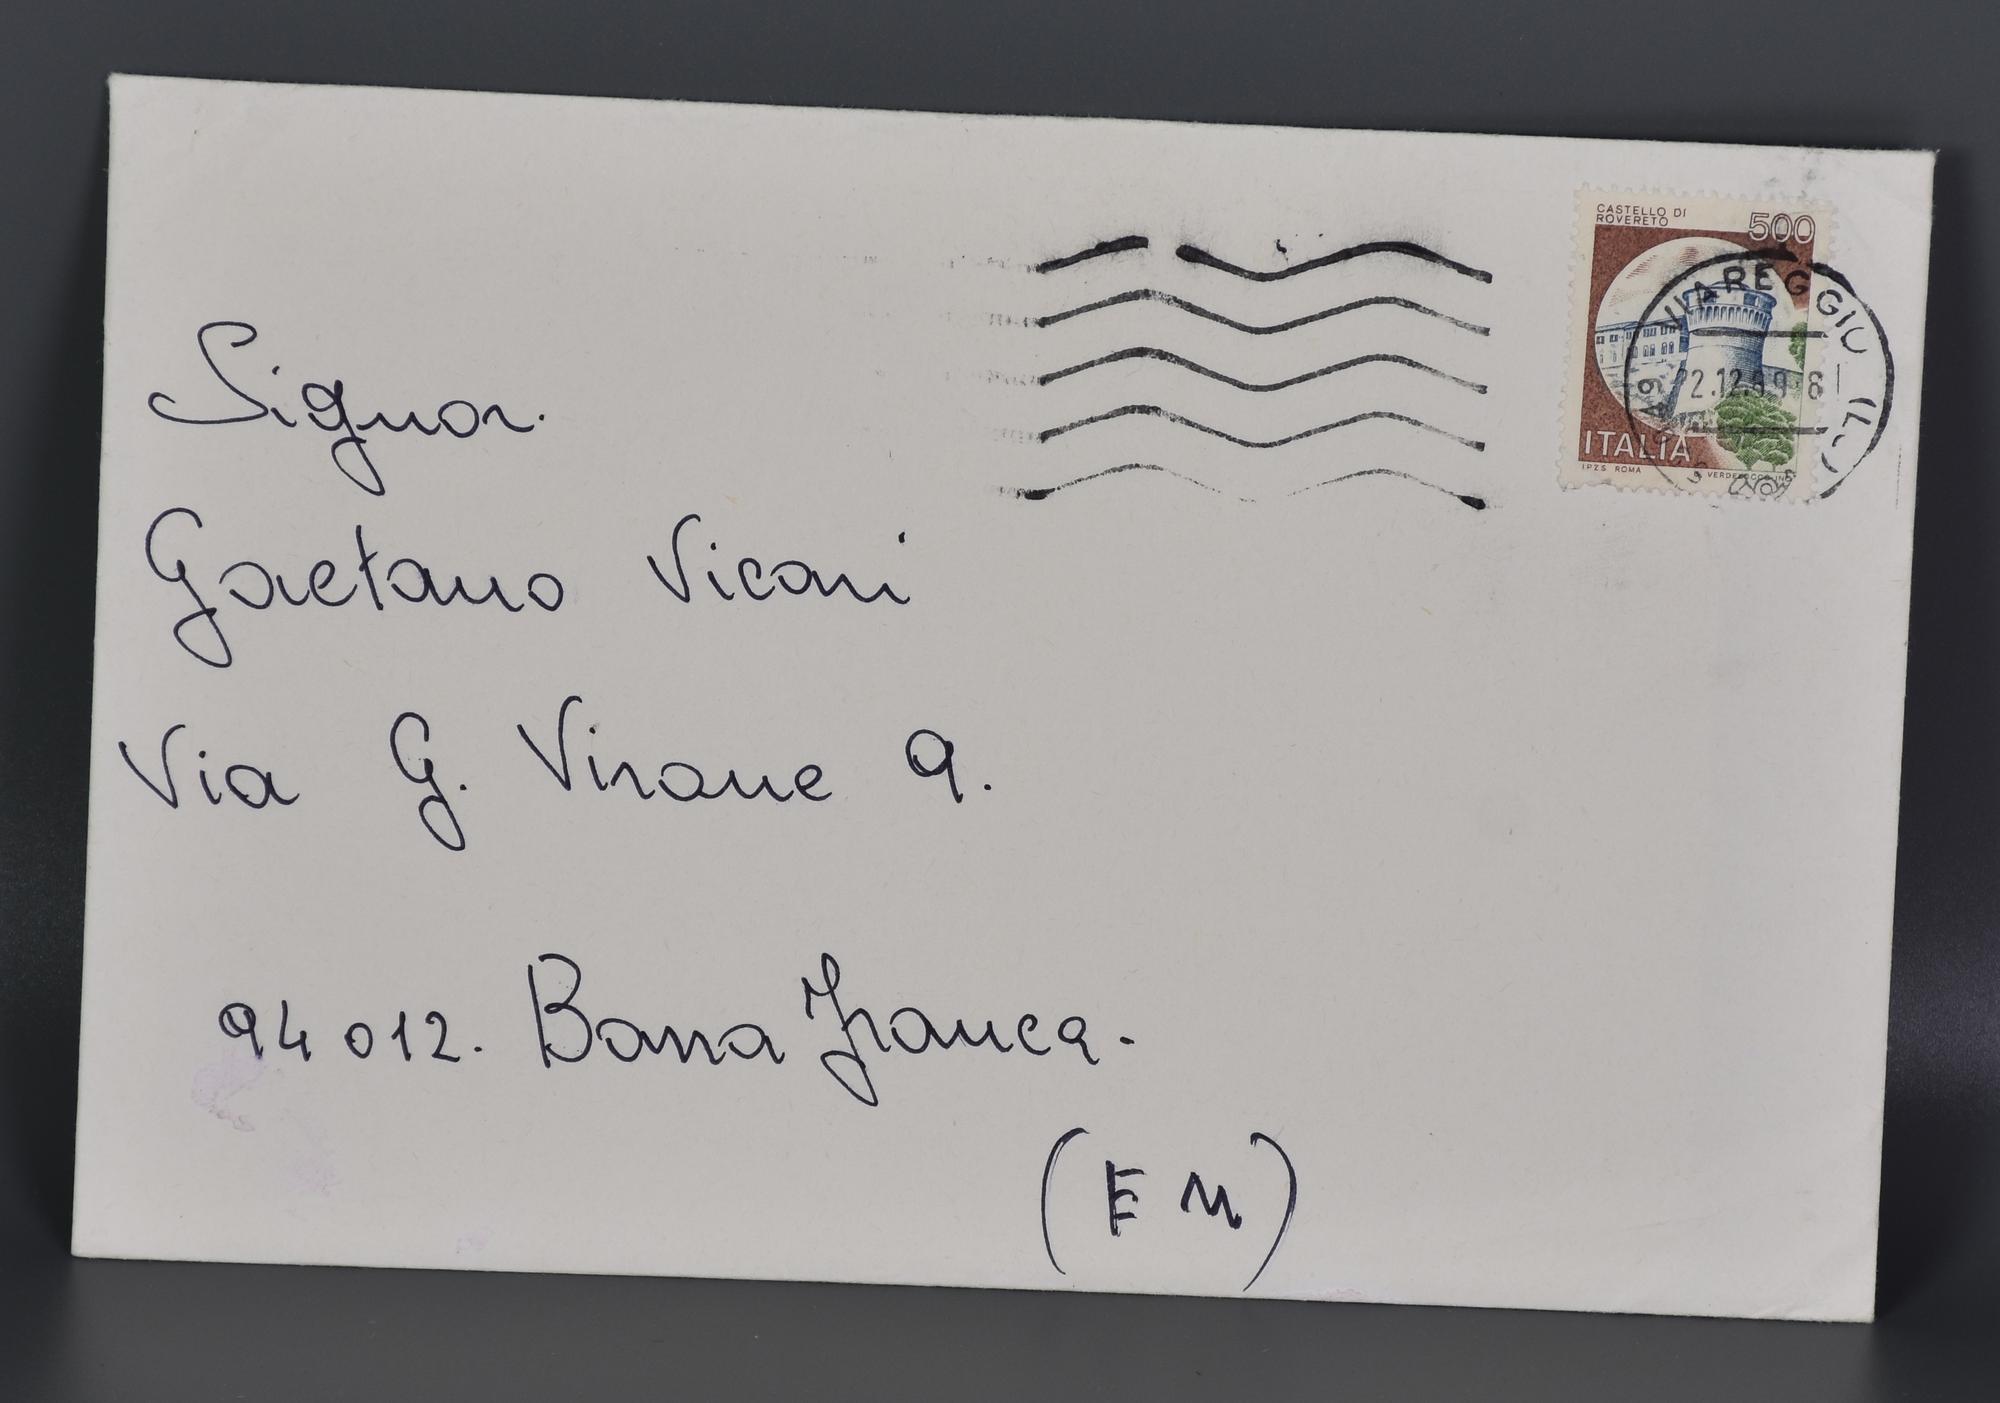 CASTELLO DI
ROVERETO
500
VIAREGGIO (L
22.12.89-8
ITALIA
IPZS ROMA
Signor.
Gaetano Vicari
Via G. Virone 9.
94012. Barra Franca.
(EN)